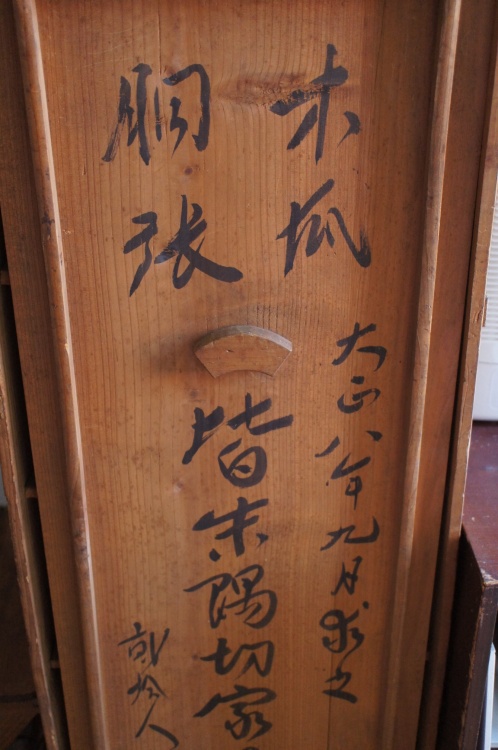 木瓜
胴張
大正八年九月求之
皆朱隅切家